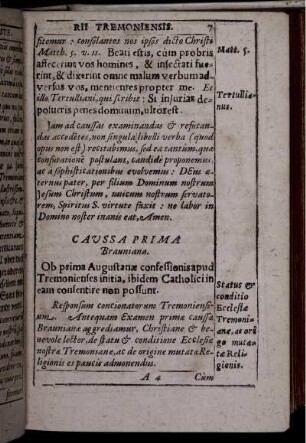 RII TREMONIENSIS. 7
fitemur: consolantes nos ipsos dicto Christi
Matth. 5. v. 11. Beati estis, cum probris
affecerint vos homines, & insectati fue-
rint, & dixerint omne malum verbum ad-
versus vos, mentientes propter me. Et
illo Tertulliani, qui scribit: Si injurias de-
posueris penes dominum, ultor est.
Matt. 5.
Tertullia-
nus.
Jam ad caussas examinandas & refutan-
das accedētes, non singula libelli verba (quod
opus non est) recitabimus, sed ea tantum, quæ
confutationē postulant, candidè proponemus,
ac à sophisticationibus evolvemus: DEus æ-
ternus pater, per filium Dominum nostrum
Jesum Christum, unicum nostrum servato-
rem, Spiritus S. virtute faxit: ne labor in
Domino noster inanis eat, Amen.
CAUSSA PRIMA
Brauniana.
Ob prima Augustanæ confessionis apud
Tremonienses initia, ibidem Catholici in
eam consentire non possunt.
Responsum concionatorum Tremoniensi-
um. Antequam Examen primæ caussæ
Braunianæ aggrediamur, Christiane & be-
nevole lector, de statu & conditione Ecclesiæ
nostræ Tremonianæ, ac de origine mutatæ Re-
ligionis es paucis admonendus.
Status &
conditio
Ecclesiæ
Tremoni-
anæ, ac ori-
go muta-
tæ Reli-
gionis.
A 4 Cùm